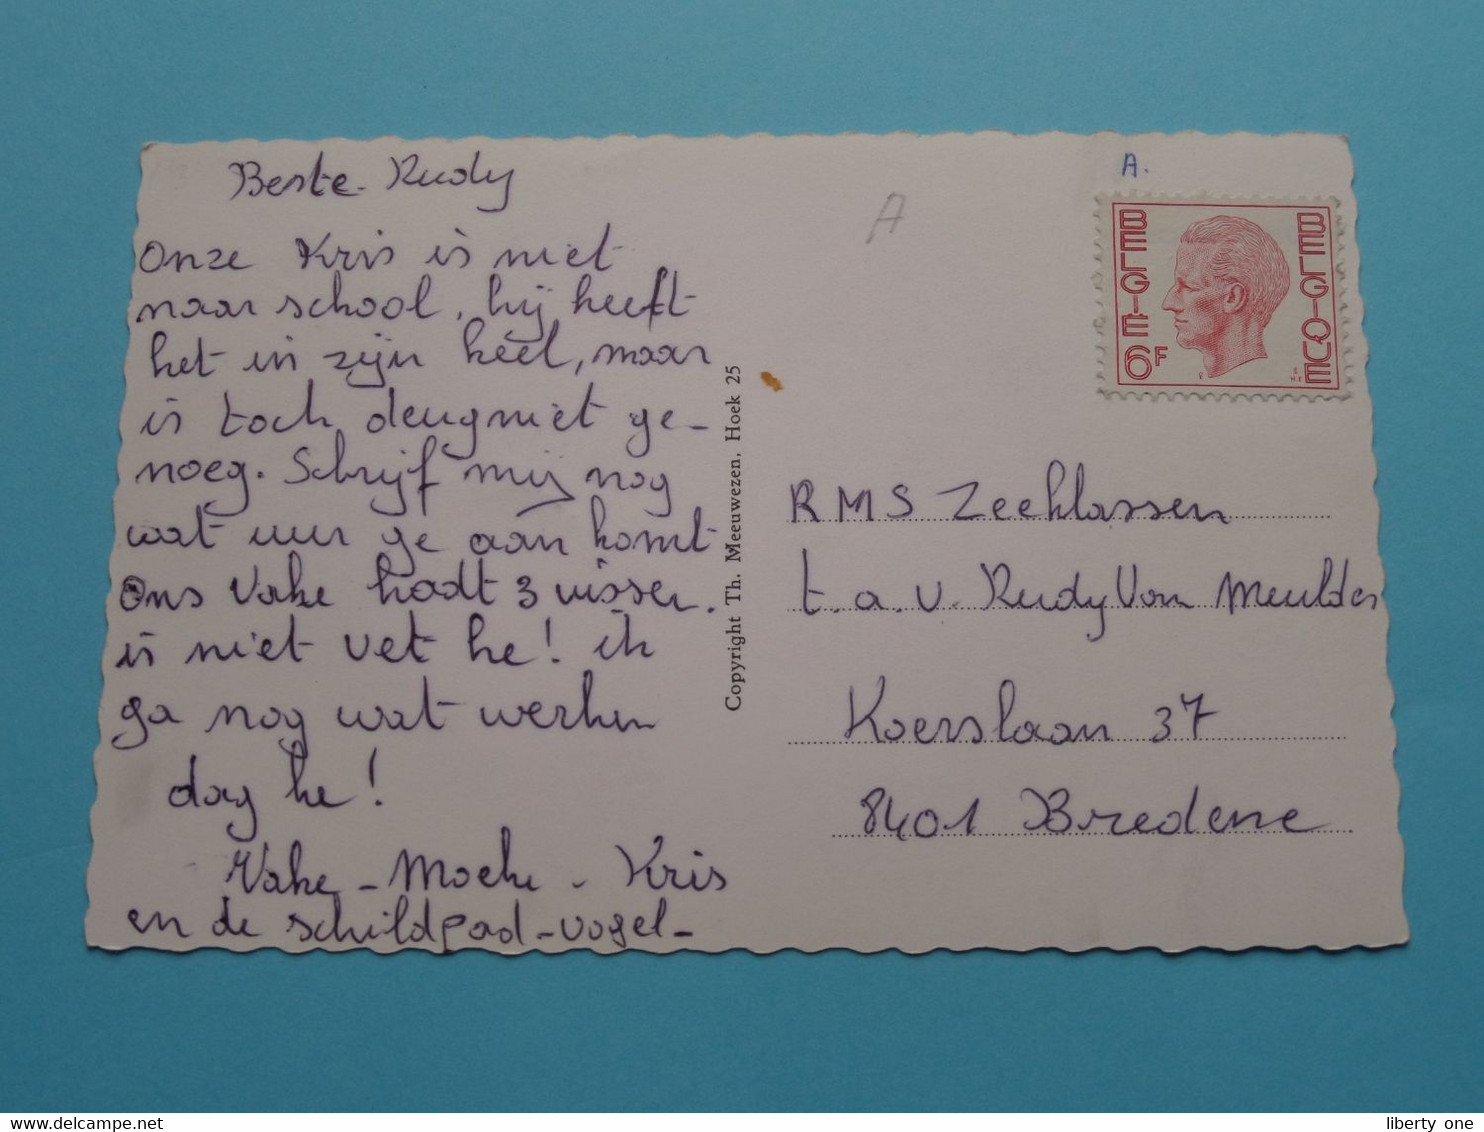 Beste Rudy
Onze Kris is niet
naar school, hij heeft
het in zijn keel, maar
is toch deugniet ge-
noeg. Schrijf mij nog
wat uur ge aan komt
Ons Vake hadt 3 vissen.
is niet vet he! ik
ga nog wat werken
dag he!
Vake - Moeke - Kris
en de schildpad - vogel -
Copyright Th. Meeuwezen, Hoek 25
A
A.
BELGIË
BELGIQUE
6F
RMS Zeeklassen
t.a.v. Rudy Van Meulder
Koerslaan 37
8401 Bredene
www.delcampe.net
liberty one